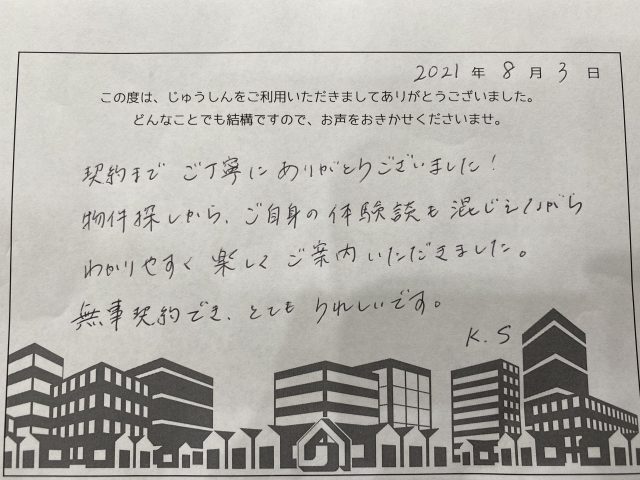 2021年8月3日
この度は、じゅうしんをご利用いただきましてありがとうございました。
どんなことでも結構ですので、お声をおきかせくださいませ。
契約まで ご丁寧にありがとうございました!
物件探しから、ご自身の体験談も混じえながら
わかりやすく楽しくご案内いただきました。
無事契約でき、とてもうれしいです。
K.S